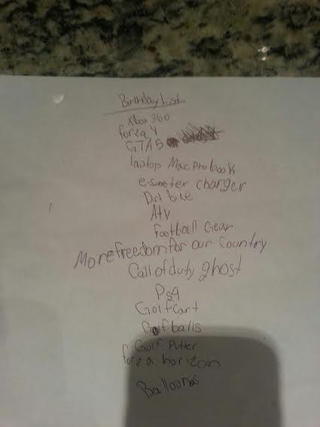 Birthday List
Xbox 360
forza 4
GTA 5
laptop Mac Pro book
e-scooter charger
Dirt bike
Atv
Football Gear
More freedom for our country
Call of duty ghost
Ps4
Golf cart
Golf balls
Golf Putter
forza horizon
Balloons